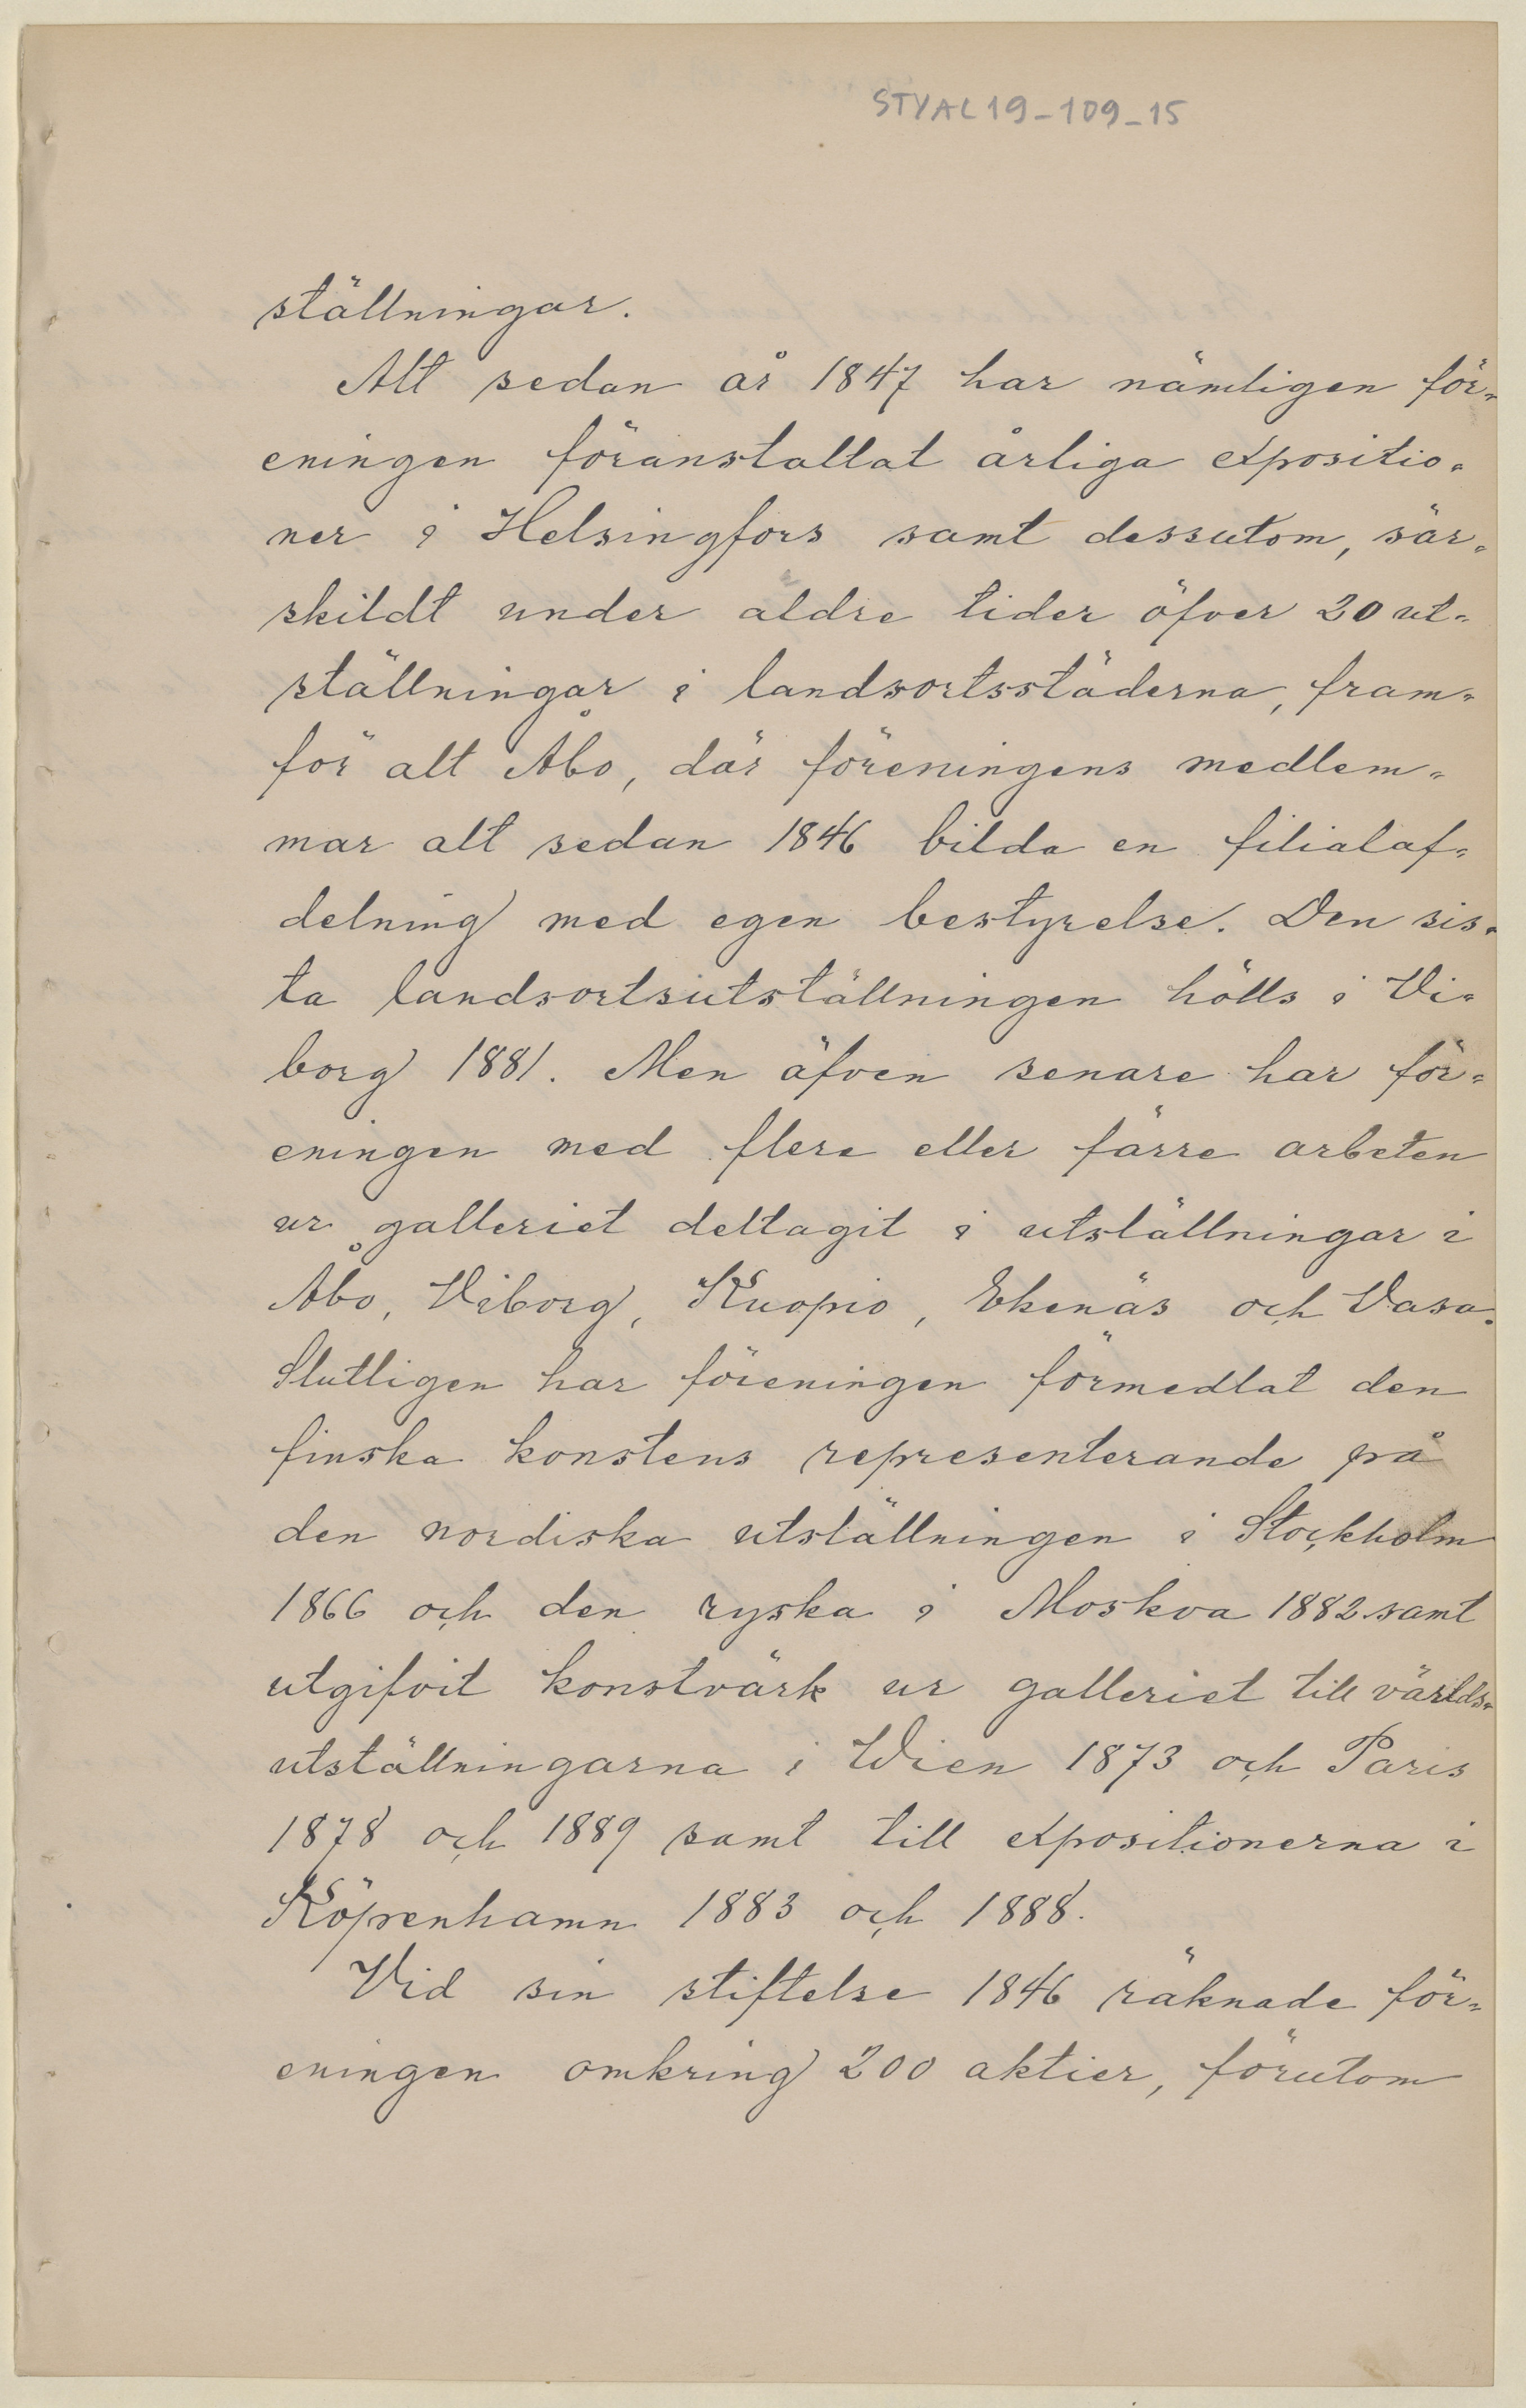 STYAL19-109-15
ställningar.
Alt sedan år 1847 har nämligen för-
eningen föranstaltat årliga expositio-
ner i Helsingfors samt dessutom, sär-
skildt under äldre tider öfver 20 ut-
ställningar i landsortsstäderna, fram-
för alt Åbo, där föreningens medlem-
mar alt sedan 1846 bilda en filialaf-
delning med egen bestyrelse. Den sis-
ta landsortsutställningen hölls i Vi-
borg 1881. Men äfven senare har för-
eningen med flere eller färre arbeten
ur galleriet deltagit i utställningar i
Åbo, Viborg, Kuopio, Ekenäs och Vasa.
Slutligen har föreningen förmedlat den
finska konstens representerande på
den nordiska utställningen i Stockholm
1866 och den ryska i Moskva 1882 samt
utgifvit konstvärk ur galleriet till världs-
utställningarna i Wien 1873 och Paris
1878 och 1889 samt till expositionerna i
Köpenhamn 1883 och 1888.
Vid sin stiftelse 1846 räknade för-
eningen omkring 200 aktier, förutom